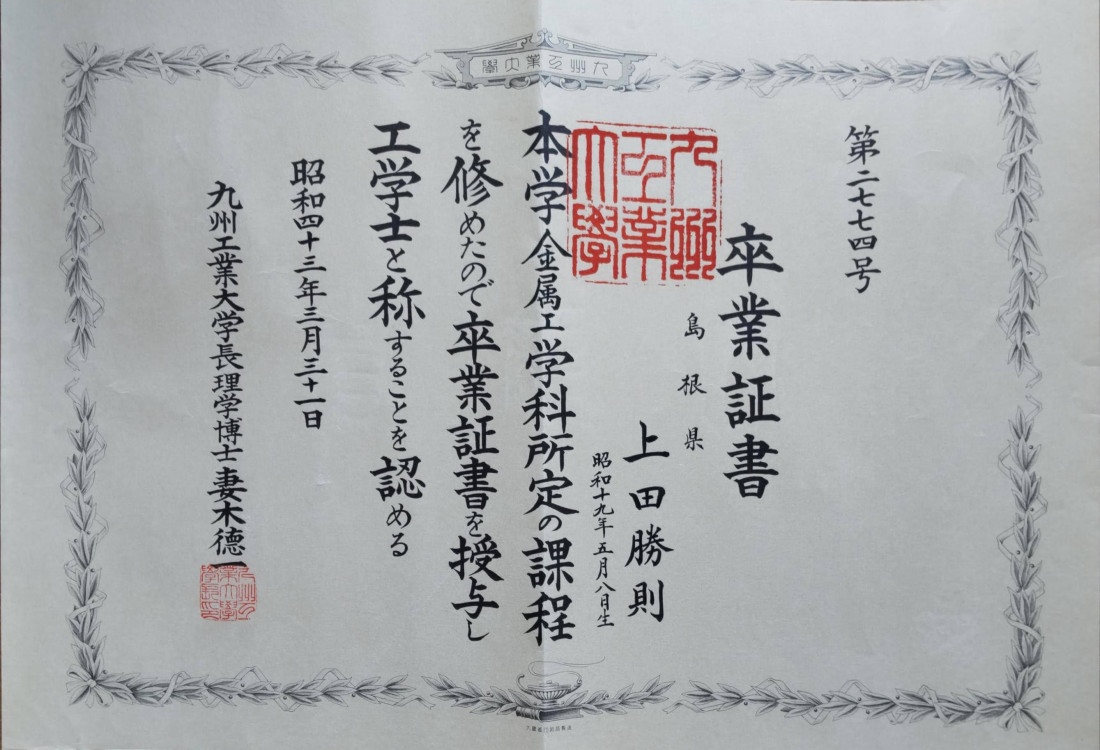 九州工業大學
第二七七四号
卒業証書
九州工業大學
島根県
上田勝則
昭和十九年五月八日生
本学金属工学科所定の課程
を修めたので卒業証書を授与し
工学士と称することを認める
昭和四十三年三月三十一日
九州工業大学長理学博士妻木徳一